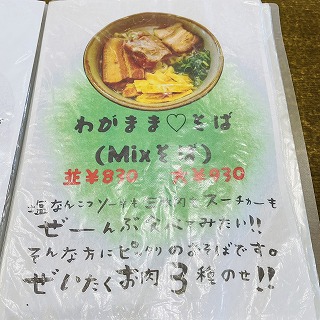 わがまま♡そば
(Mixそば)
並¥830 大¥930
塩なんこつソーキも三枚肉もスーチカーも
ぜーんぶ食べてみたい!!
そんな方にピッタリのおそばです。
ぜいたくお肉3種のせ!!